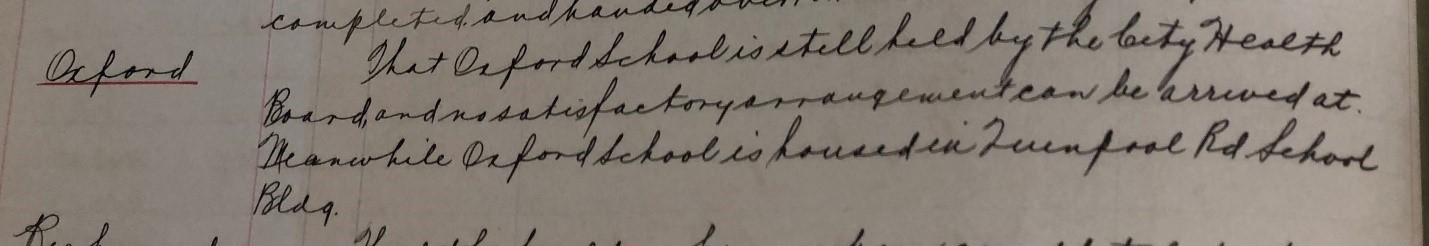 completed and handed over
Oxford
That Oxford School is still held by the City Health
Board, and no satisfactory arrangement can be arrived at.
Meanwhile Oxford School is housed in Quinpool Rd School
Bldg.